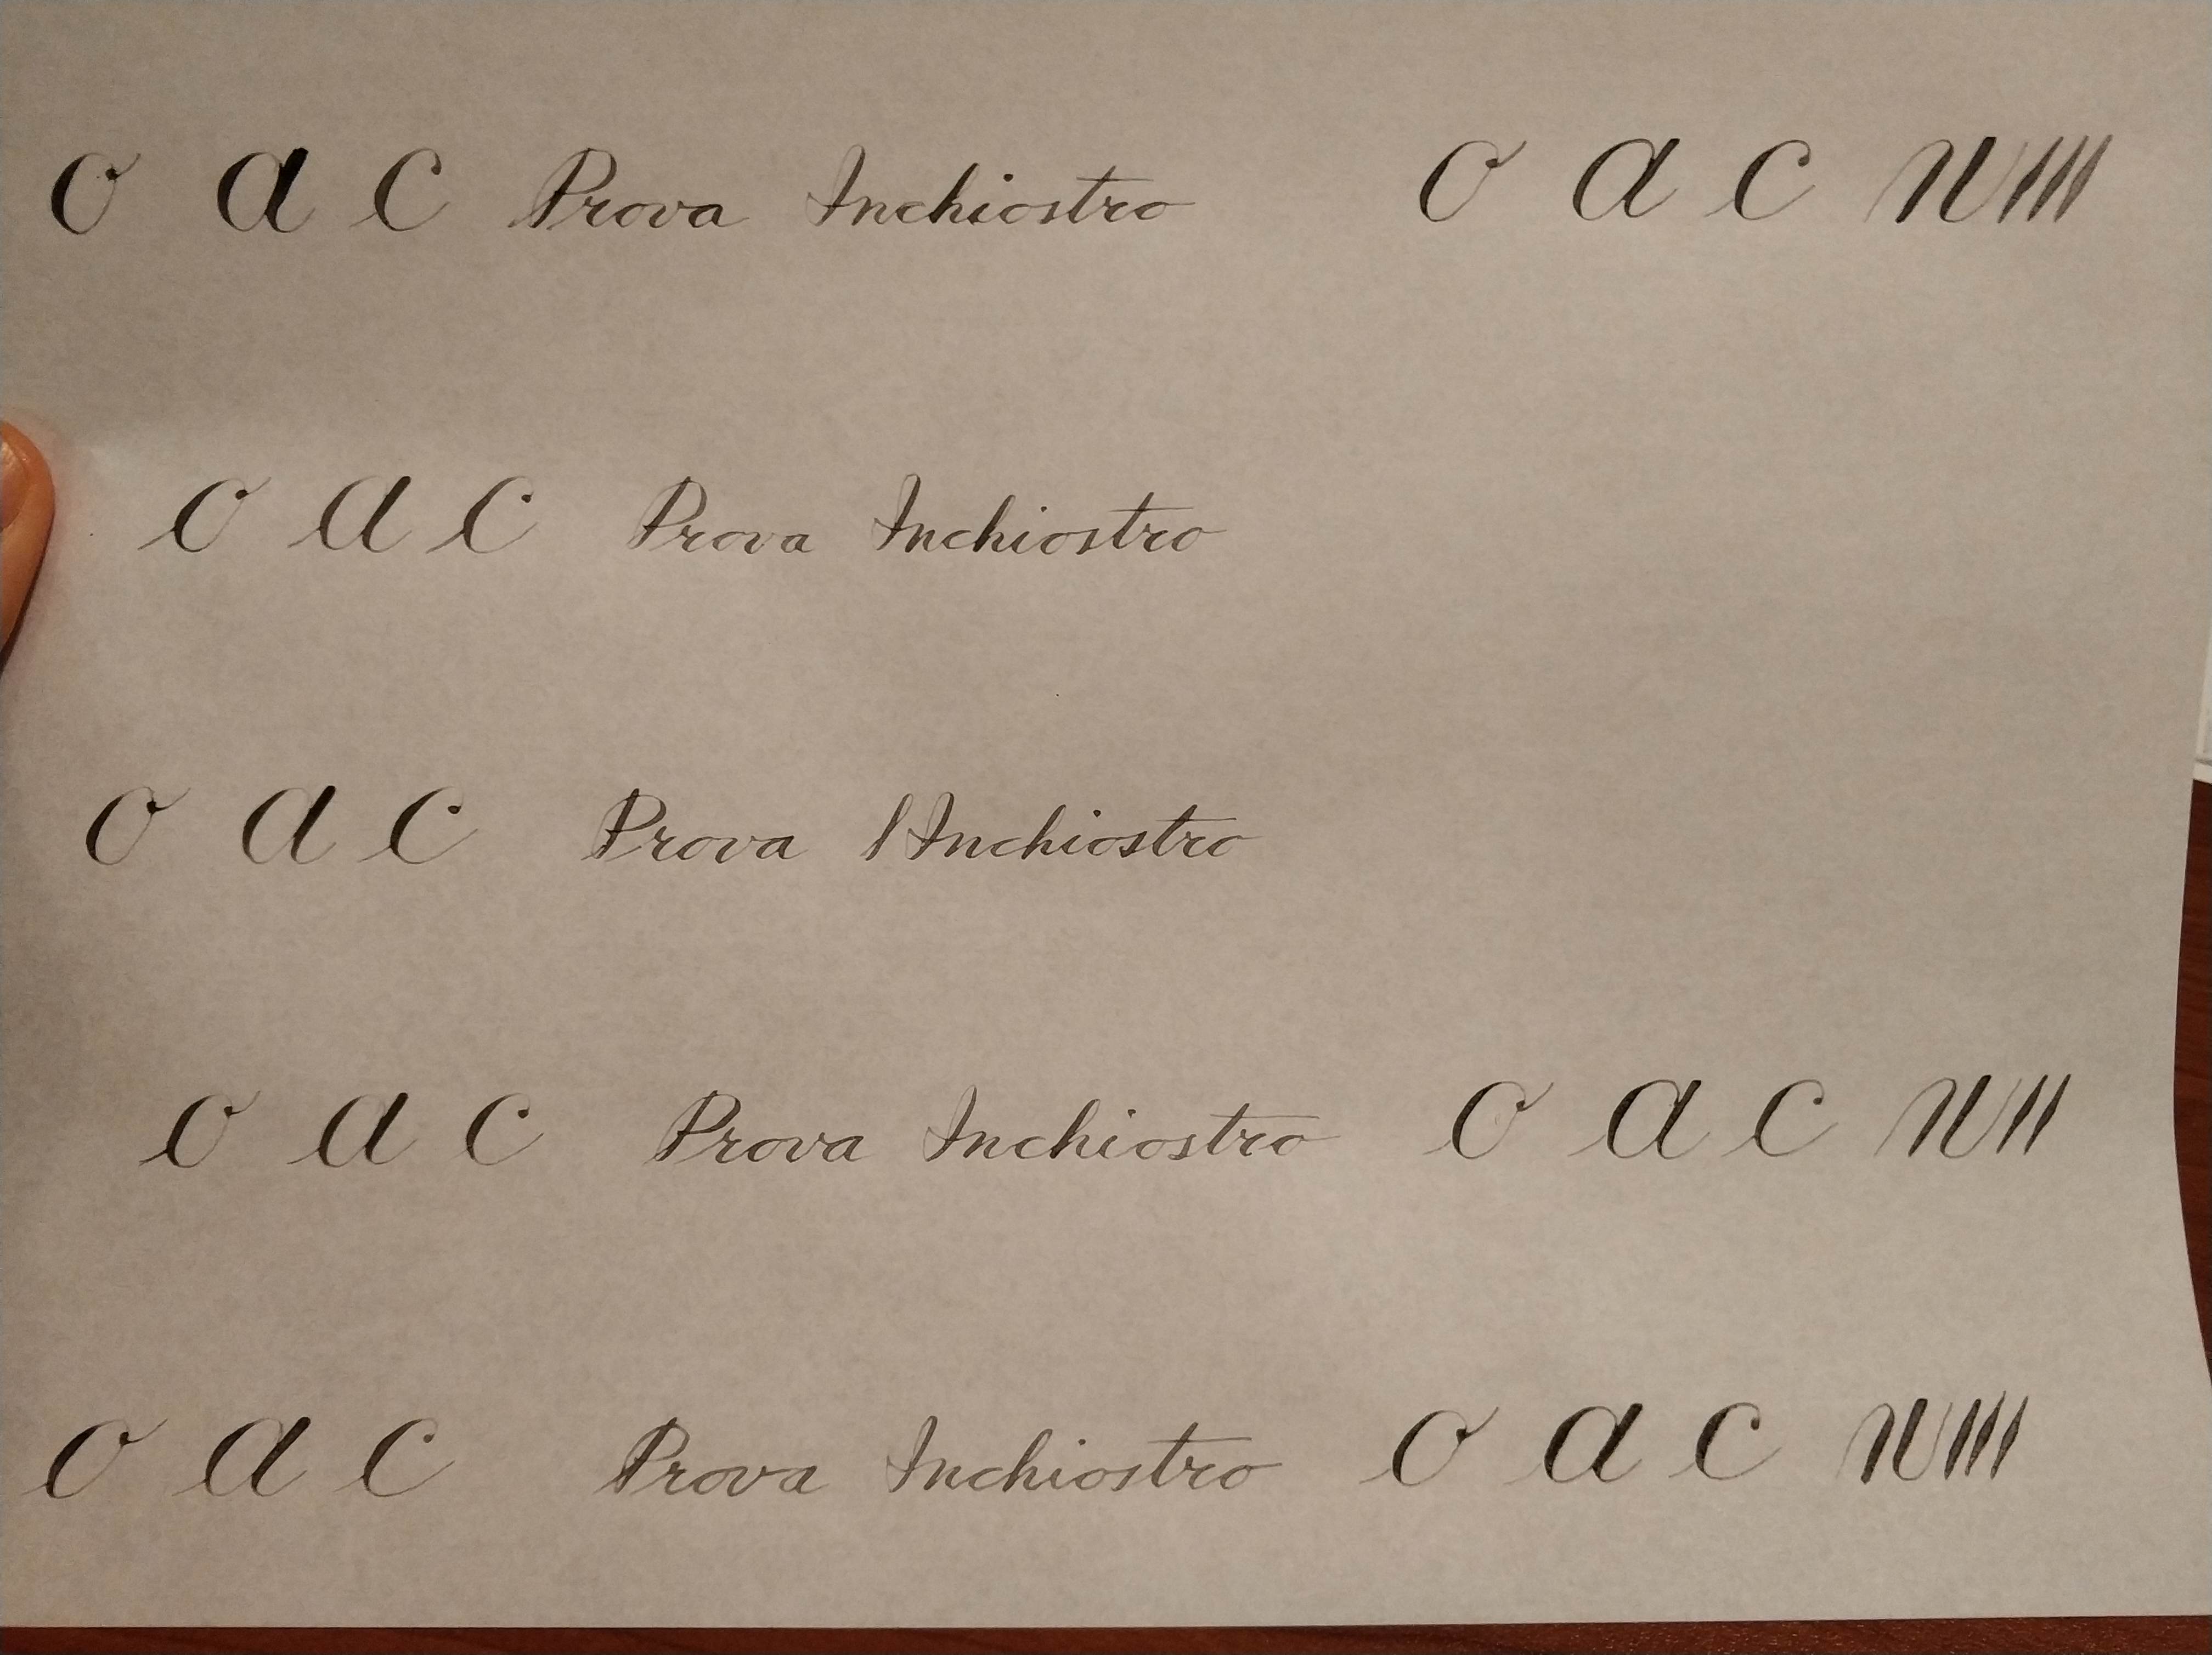 o a c Prova Inchiostro o a c n
o a c Prova Inchiostro
o a c Prova Inchiostro
o a c Prova Inchiostro o a c n
o a c Prova Inchiostro o a c n